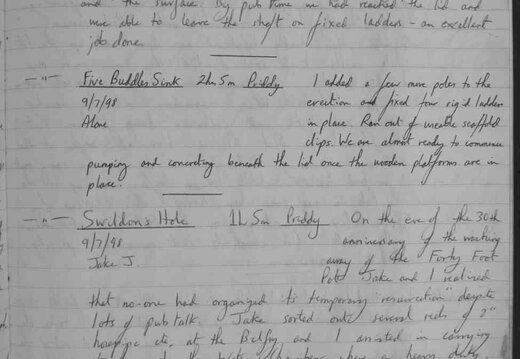 and the surface. By pub time we had reached the lid and
were able to leave the shaft on fixed ladders - an excellent
job done.
— " — Five Buddles Sink 2h 5m Priddy I added a few more poles to the
9/7/98 erection and fixed four rigid ladders
Alone in place. Ran out of useable scaffold
clips. We are almost ready to commence
pumping and concreting beneath the lid once the wooden platforms are in
place.
— " — Swildon's Hole 1h 5m Priddy On the eve of the 30th
9/7/98 anniversary of the washing
Jake J. away of the Forty Foot
Pot Jake and I realized
that no-one had organized its "temporary resurrection" despite
lots of pub talk. Jake sorted out several reels of 2"
hosepipe etc. at the Belfry and I assisted in carrying